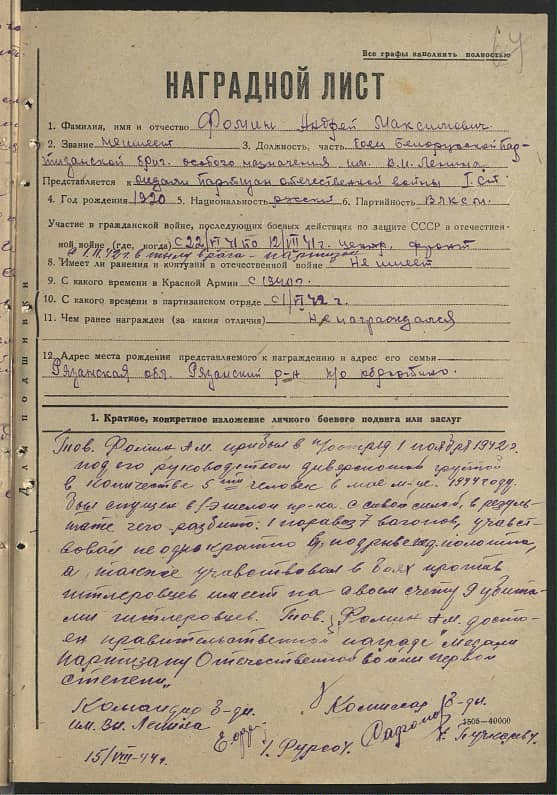 Все графы заполнять полностью
64
НАГРАДНОЙ ЛИСТ
1. Фамилия, имя и отчество Фомин Андрей Максимович
2. Звание не имеет 3. Должность, часть Боец Белорусской Пар-
тизанской бриг. особого назначения им. В.И. Ленина
Представляется к медали Партизан отечественной войны I ст.
4. Год рождения 1920 5. Национальность русский 6. Партийность ВЛКСМ.
Участие в гражданской войне, последующих боевых действиях по защите СССР в отечествен-
ной войне (где, когда) с 22/VI 41 по 12/VII 41 г. центр. фронт
в тылу врага - партизан
8. Имеет ли ранения и контузии в отечественной войне Не имеет
9. С какого времени в Красной Армии с 1940 г.
10. С какого времени в партизанском отряде с 1/ 42 г.
11. Чем ранее награжден (за какия отличия) Не награждался
12. Адрес места рождения представляемого к награждению и адрес его семьи
Рязанская обл. Рязанский р-н п/о
Для подшивки
1. Краткое, конкретное изложение личного боевого подвига или заслуг
Тов. Фомин А.М. прибыл в п/отряд 1 ноября 1942 г.
под его руководством диверсионной группой
в количестве 5ти человек в мае м-це. 1944 году.
был спущен в/эшелон пр-ка с живой силой, в резуль-
тате чего разбито: 1 паравоз 7 вагонов, учавст-
вовал неоднократно в подрыве ж.д. полотна,
а также учавствовал в боях против
гитлеровцев имеет на своем счету 9 убиты-
ми гитлеровцев. Тов. Фомин А.М. досто-
ен правительственной награде "Медали
Партизану Отечественной войны первой
степени".
Командир б-ды. Комиссар б-ды.
им. Вл. Ленина 1505—40000
/. Фурсов.
15/VIII-44 г.